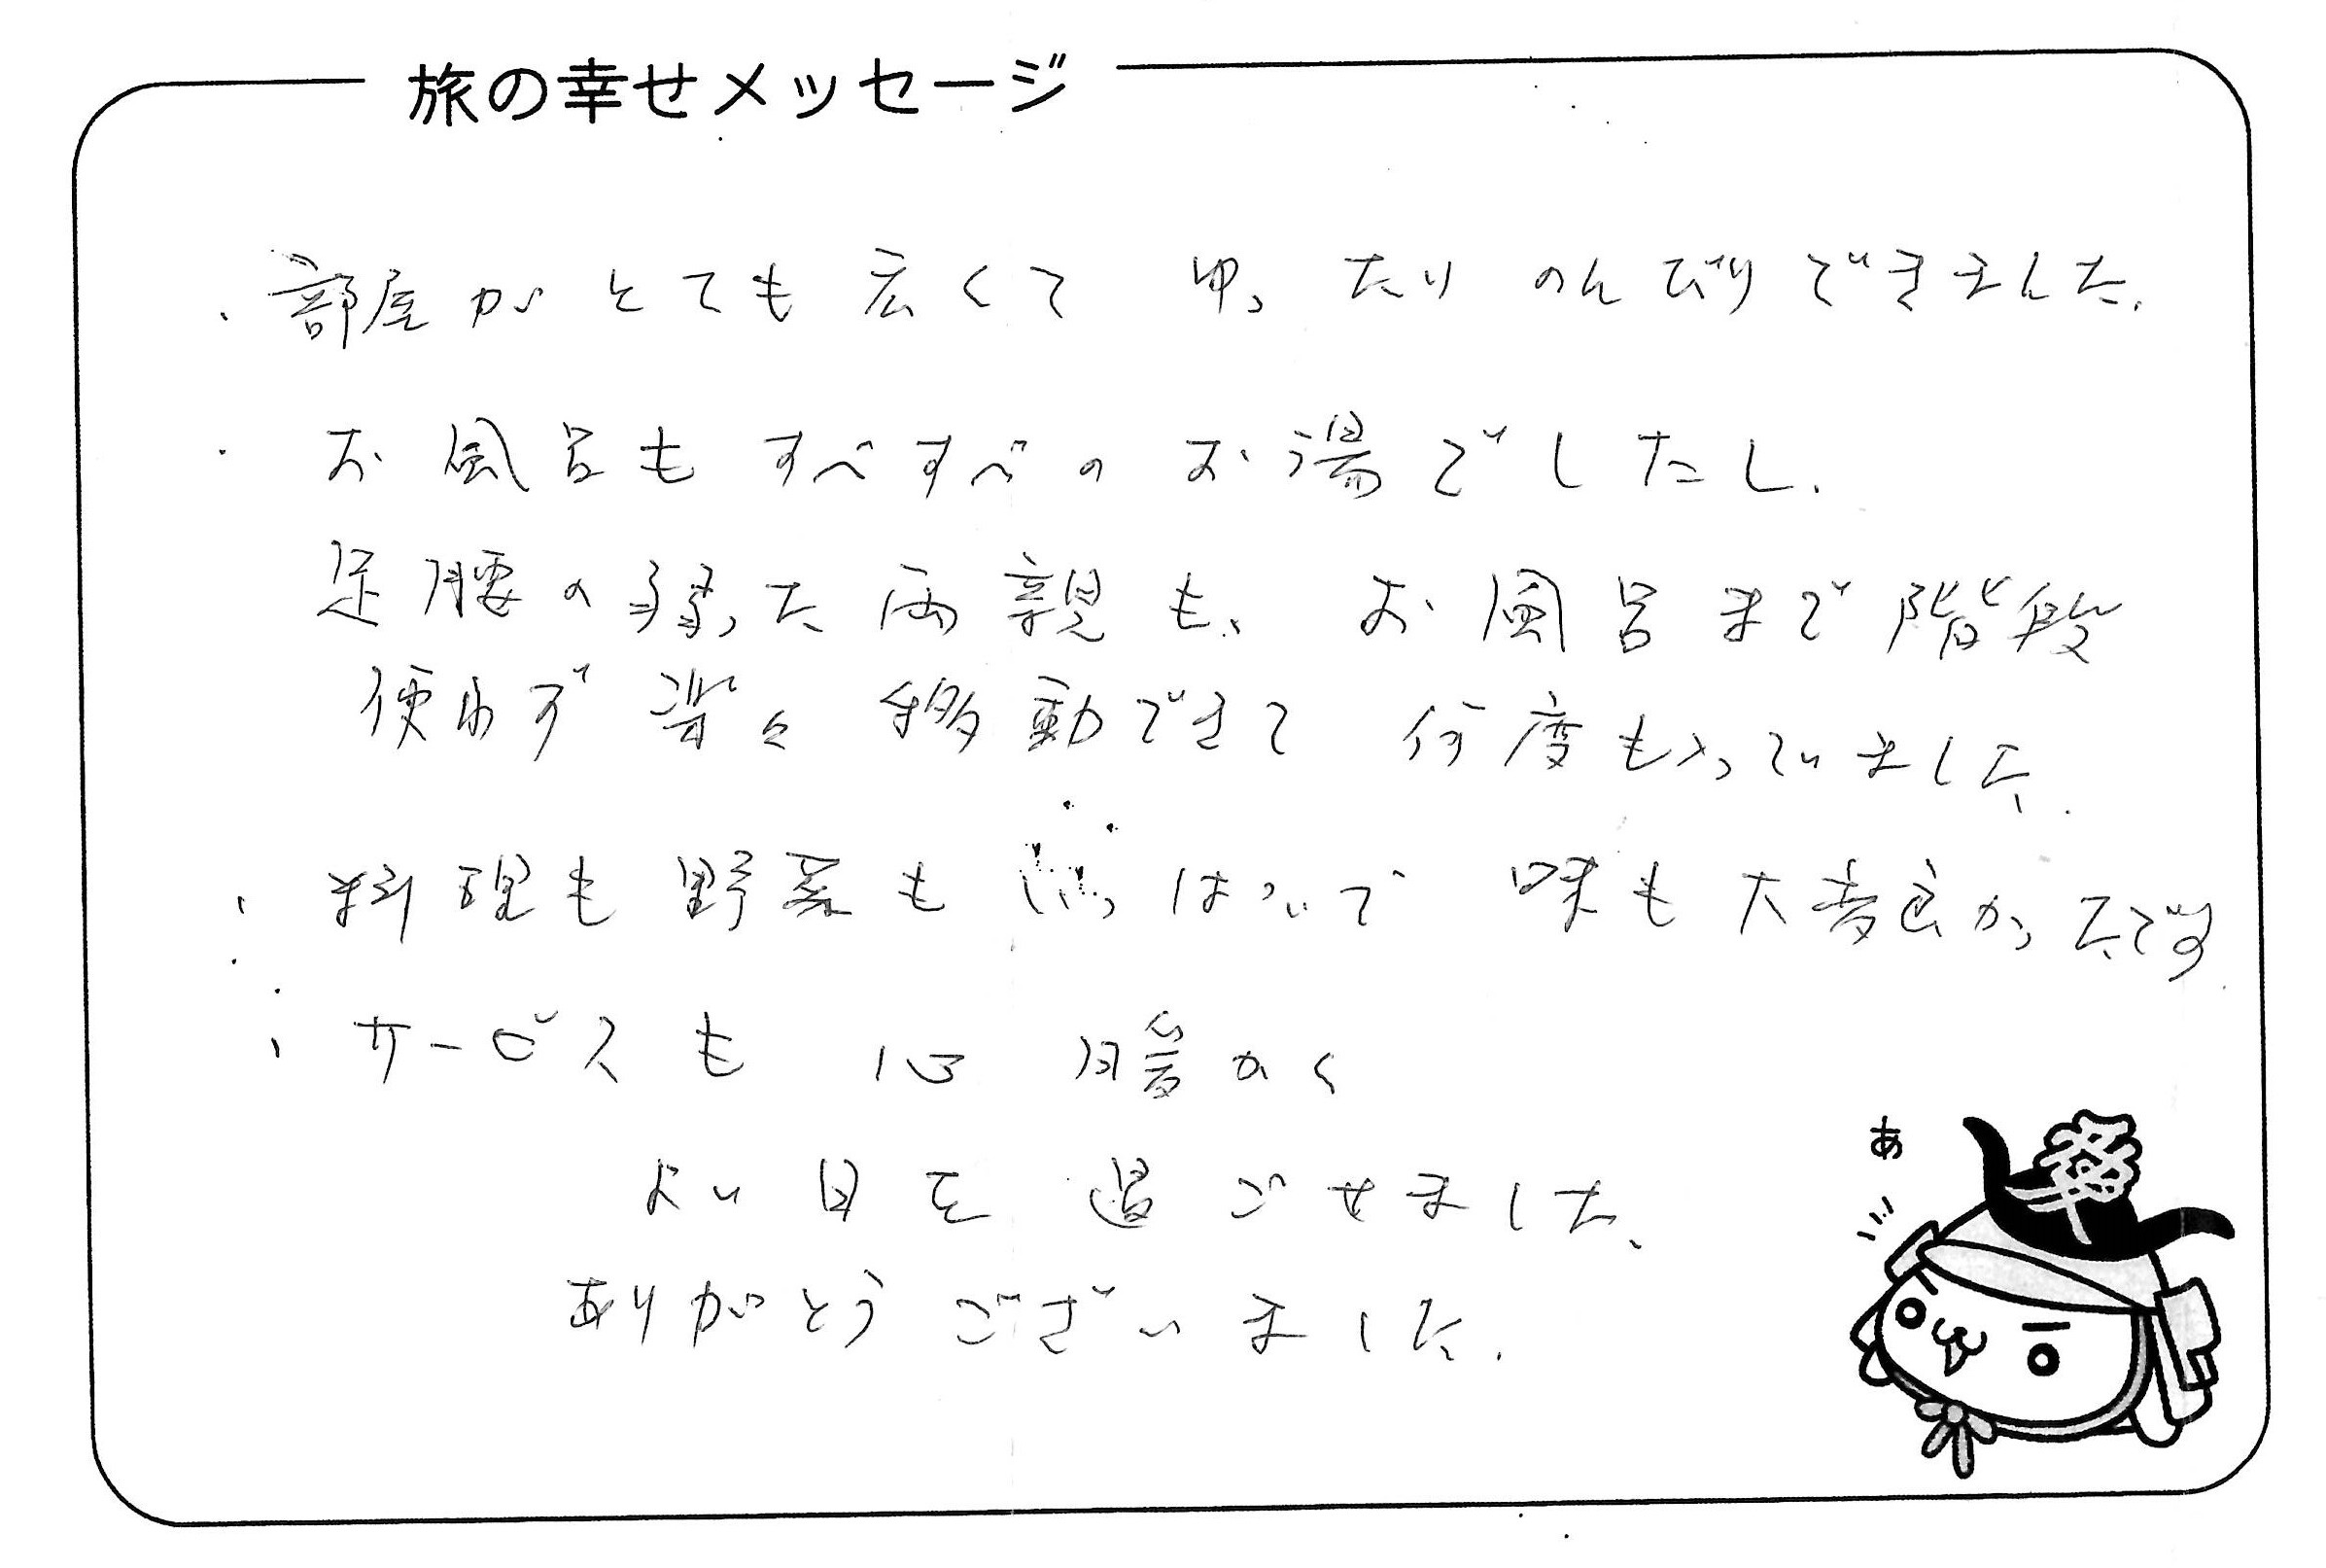 旅の幸せメッセージ
・部屋がとても広くて ゆったりのんびりできました。
・お風呂もすべすべのお湯でしたし、
足腰の弱った両親も、お風呂まで階段
使わず楽々移動できて 何度も入っていました。
・料理も野菜もいっぱいで 味も大変良かったです
・サービスも心暖かく
よい日を過ごせました。
ありがとうございました。
あ